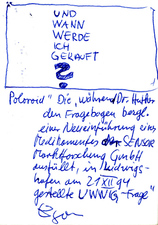 UND
WANN
WERDE
ICH
GERAUFT
?
Poloroid" Die, während Dr. Hutter
den Fragebogen bezgl.
einer Neueinführung eines
Medikamentes der SENSOR
Marktforschung GmbH
ausfüllt, in
hafen am 21 XII 94
gestellte UWWIG-Frage"